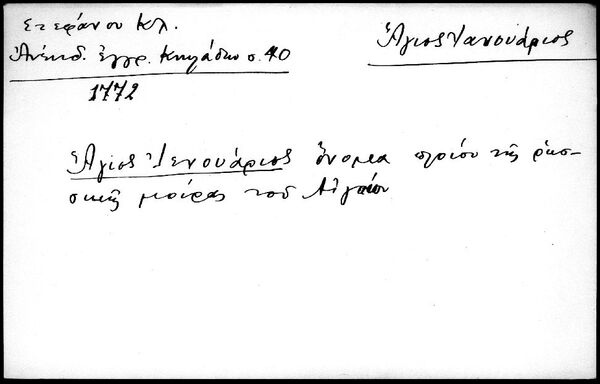 Στεφάνου Κλ.
Ἀνέκδ. ἔγγρ. Κυκλάδων σ. 40
1772
Ἅγιος Ἰανουάριος
Ἅγιος Ἰενουάριος ὄνομα πλοίου τῆς ῥωσ-
σικῆς μοίρας τοῦ Αἰγαίου